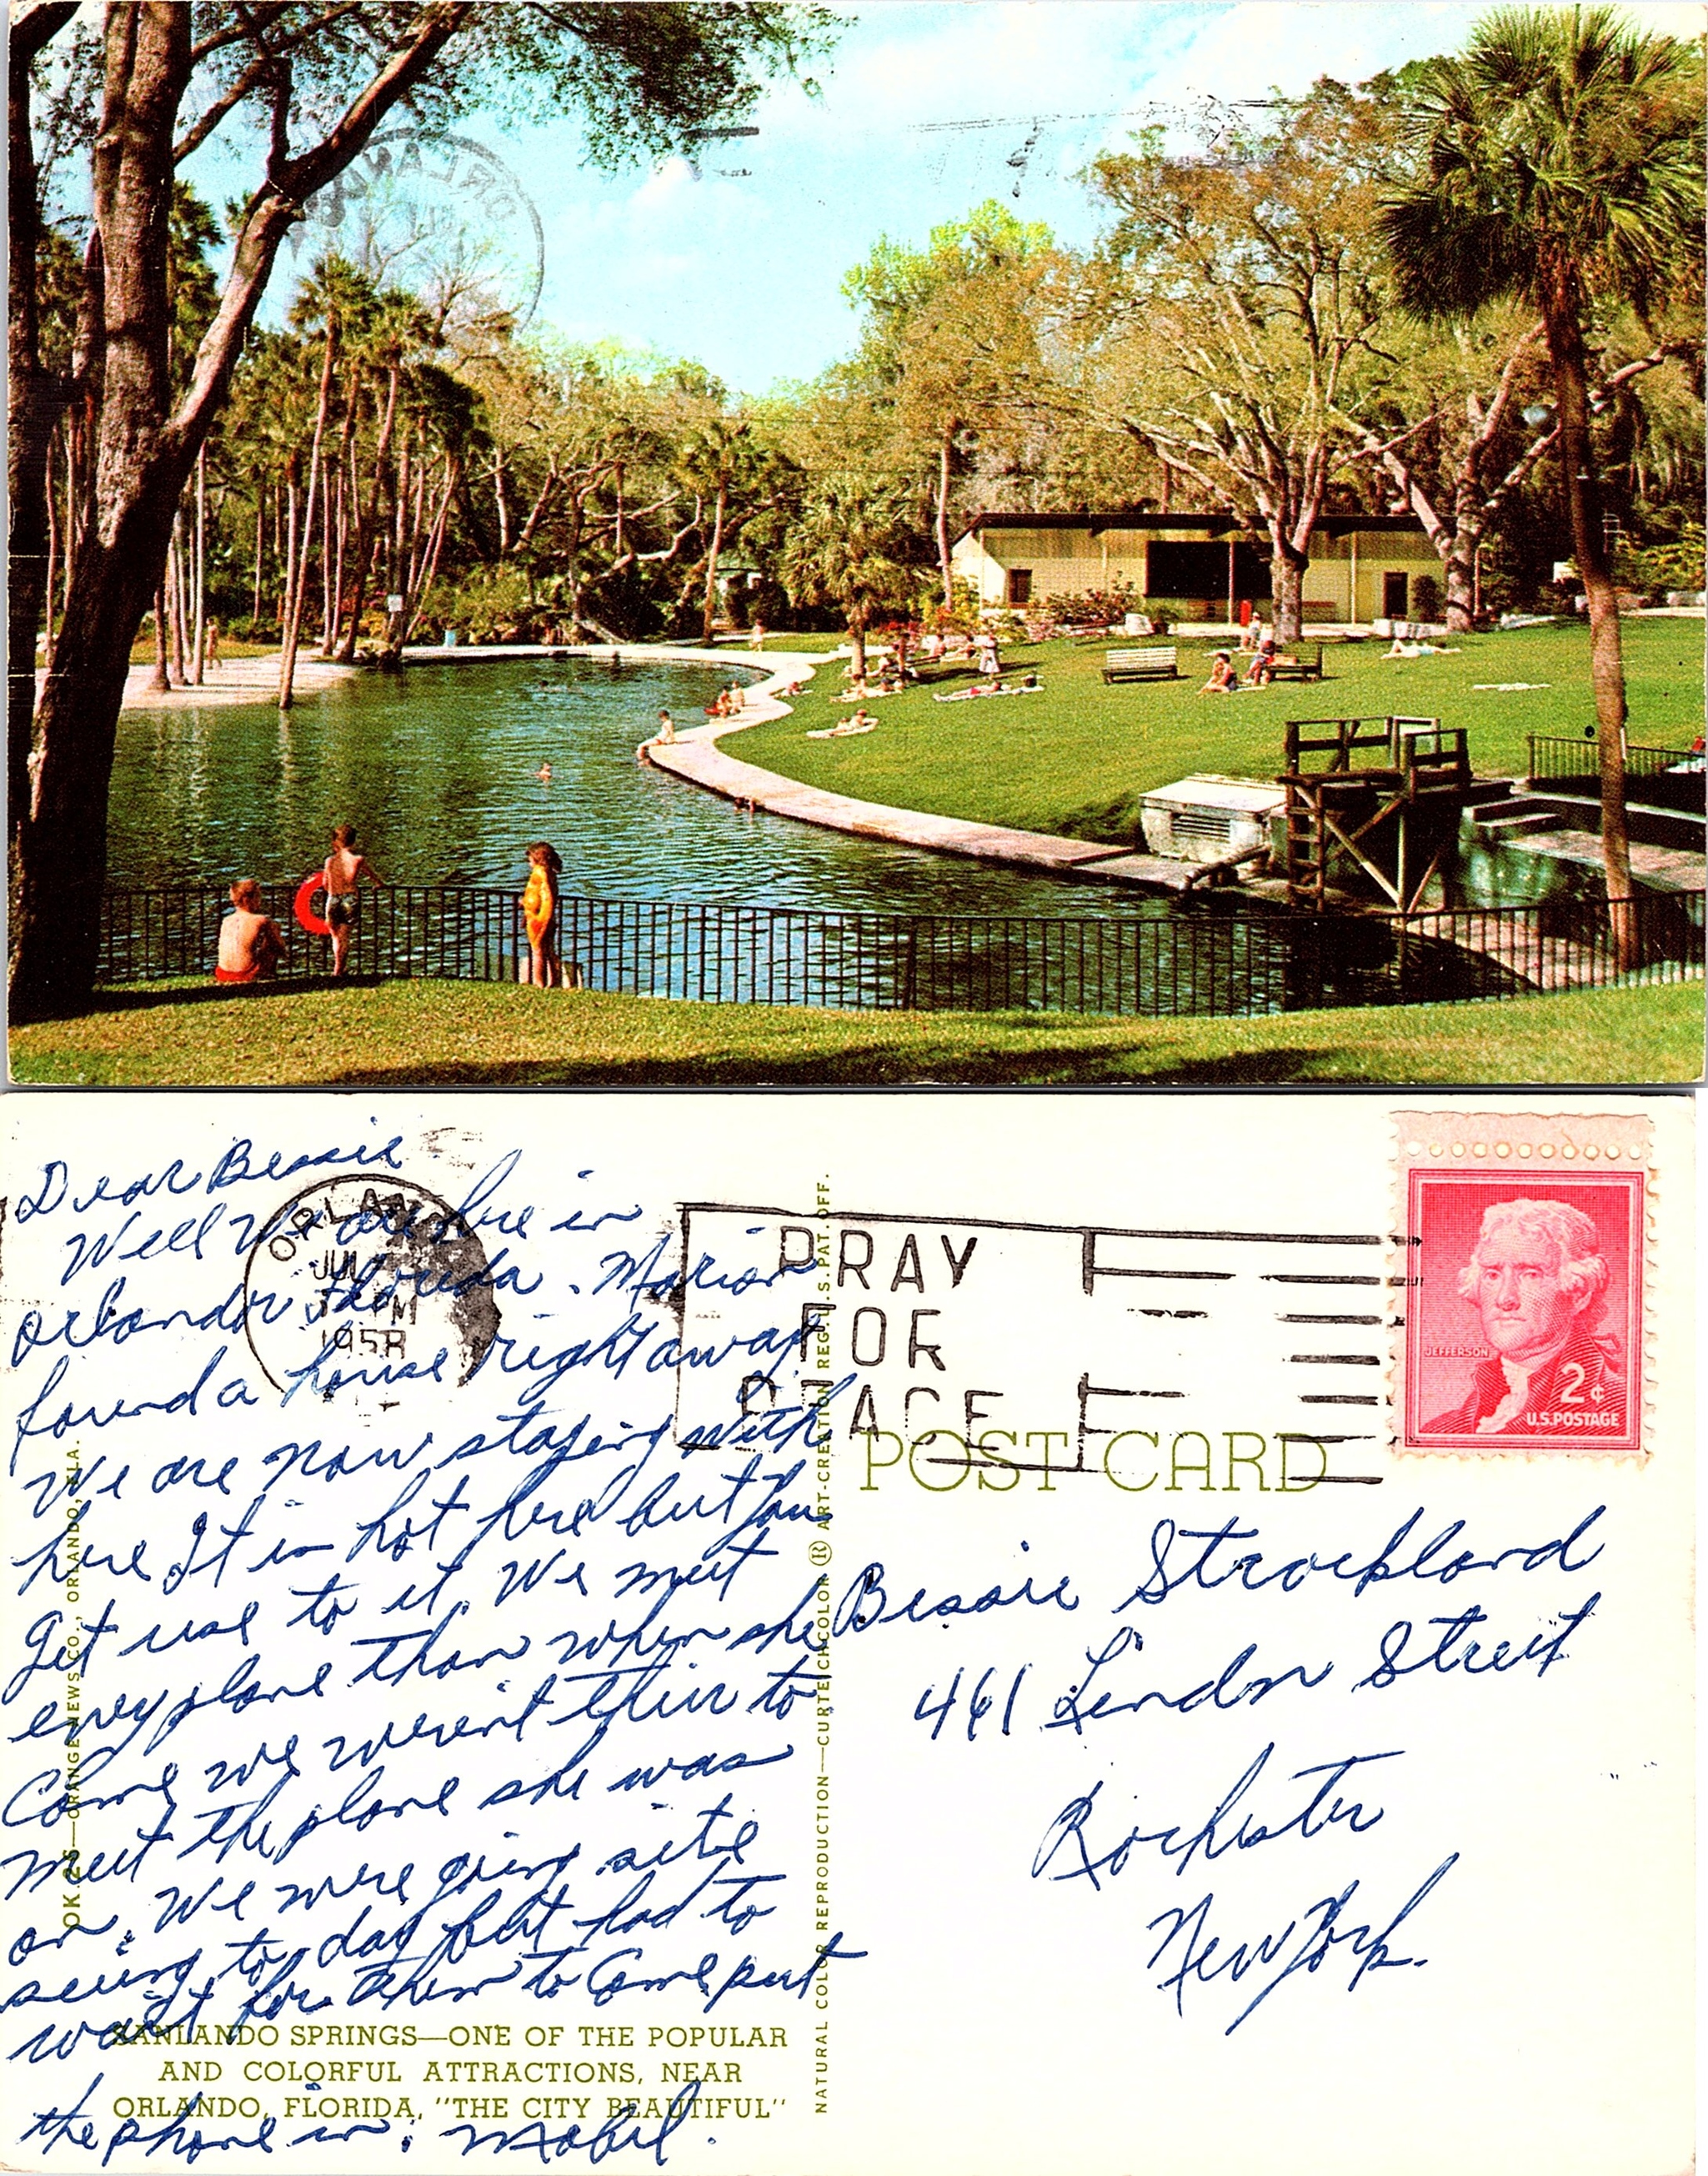 ORLAN
Dear Bessie
Well we are here in
Orlando Florida. Marion
found a house right away
We are now staying with
here It is hot here but you
get use to it. We meet
every plane than when she
come we weren't their to
meet the plane she was
on. We were going site
seeing to day but had to
wait for them to come put
the phone in. Mabel.
ORLAN
JUN
PM
1958
PRAY
FOR
PEACE
JEFFERSON
2¢
U.S. POSTAGE
POST CARD
Bessie Strockland
461 Lindon Street
Rochester
New York.
OK 25—ORANGE NEWS CO., ORLANDO, FLA.
NATURAL COLOR REPRODUCTION—CURTEICHCOLOR ® ART-CREATION REG. U.S. PAT. OFF.
SANLANDO SPRINGS—ONE OF THE POPULAR
AND COLORFUL ATTRACTIONS, NEAR
ORLANDO, FLORIDA, "THE CITY BEAUTIFUL"